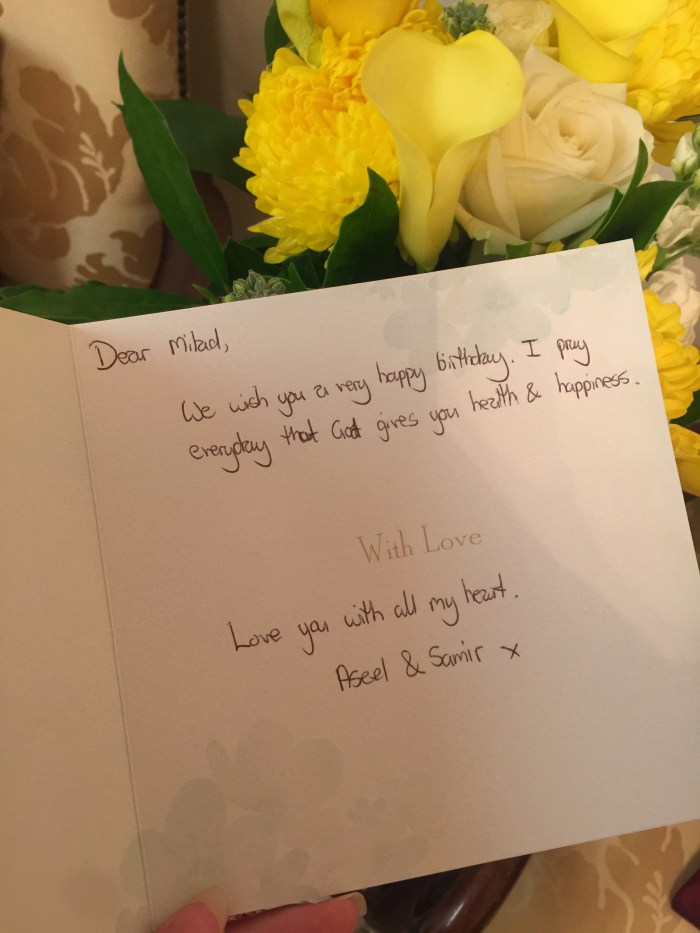 Dear Milad,
We wish you a very happy birthday. I pray
everyday that God gives you health & happiness.
With Love
Love you with all my heart.
Aseel & Samir x